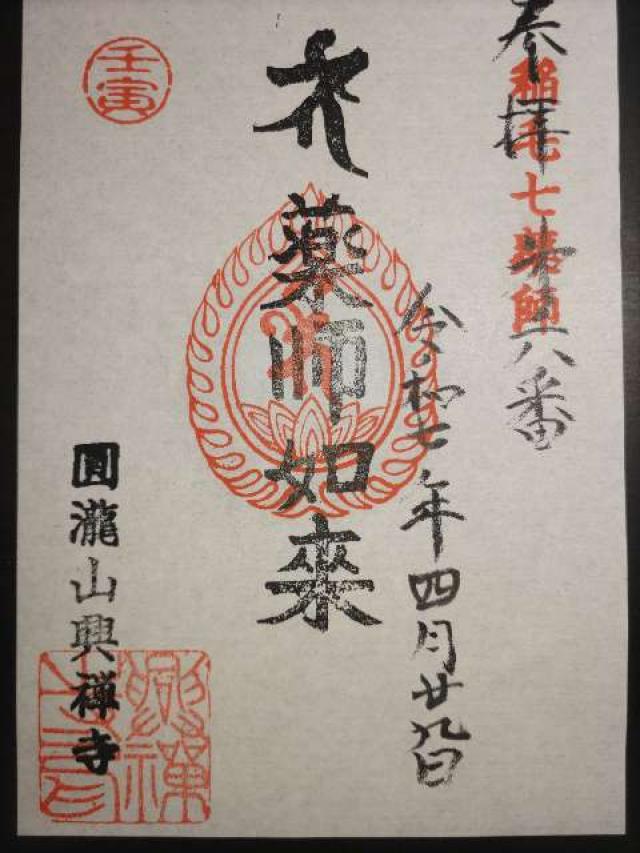 奉拝
稲毛七薬師
番
令和七年四月廿九日
薬師如来
壬寅
圓瀧山興禅寺